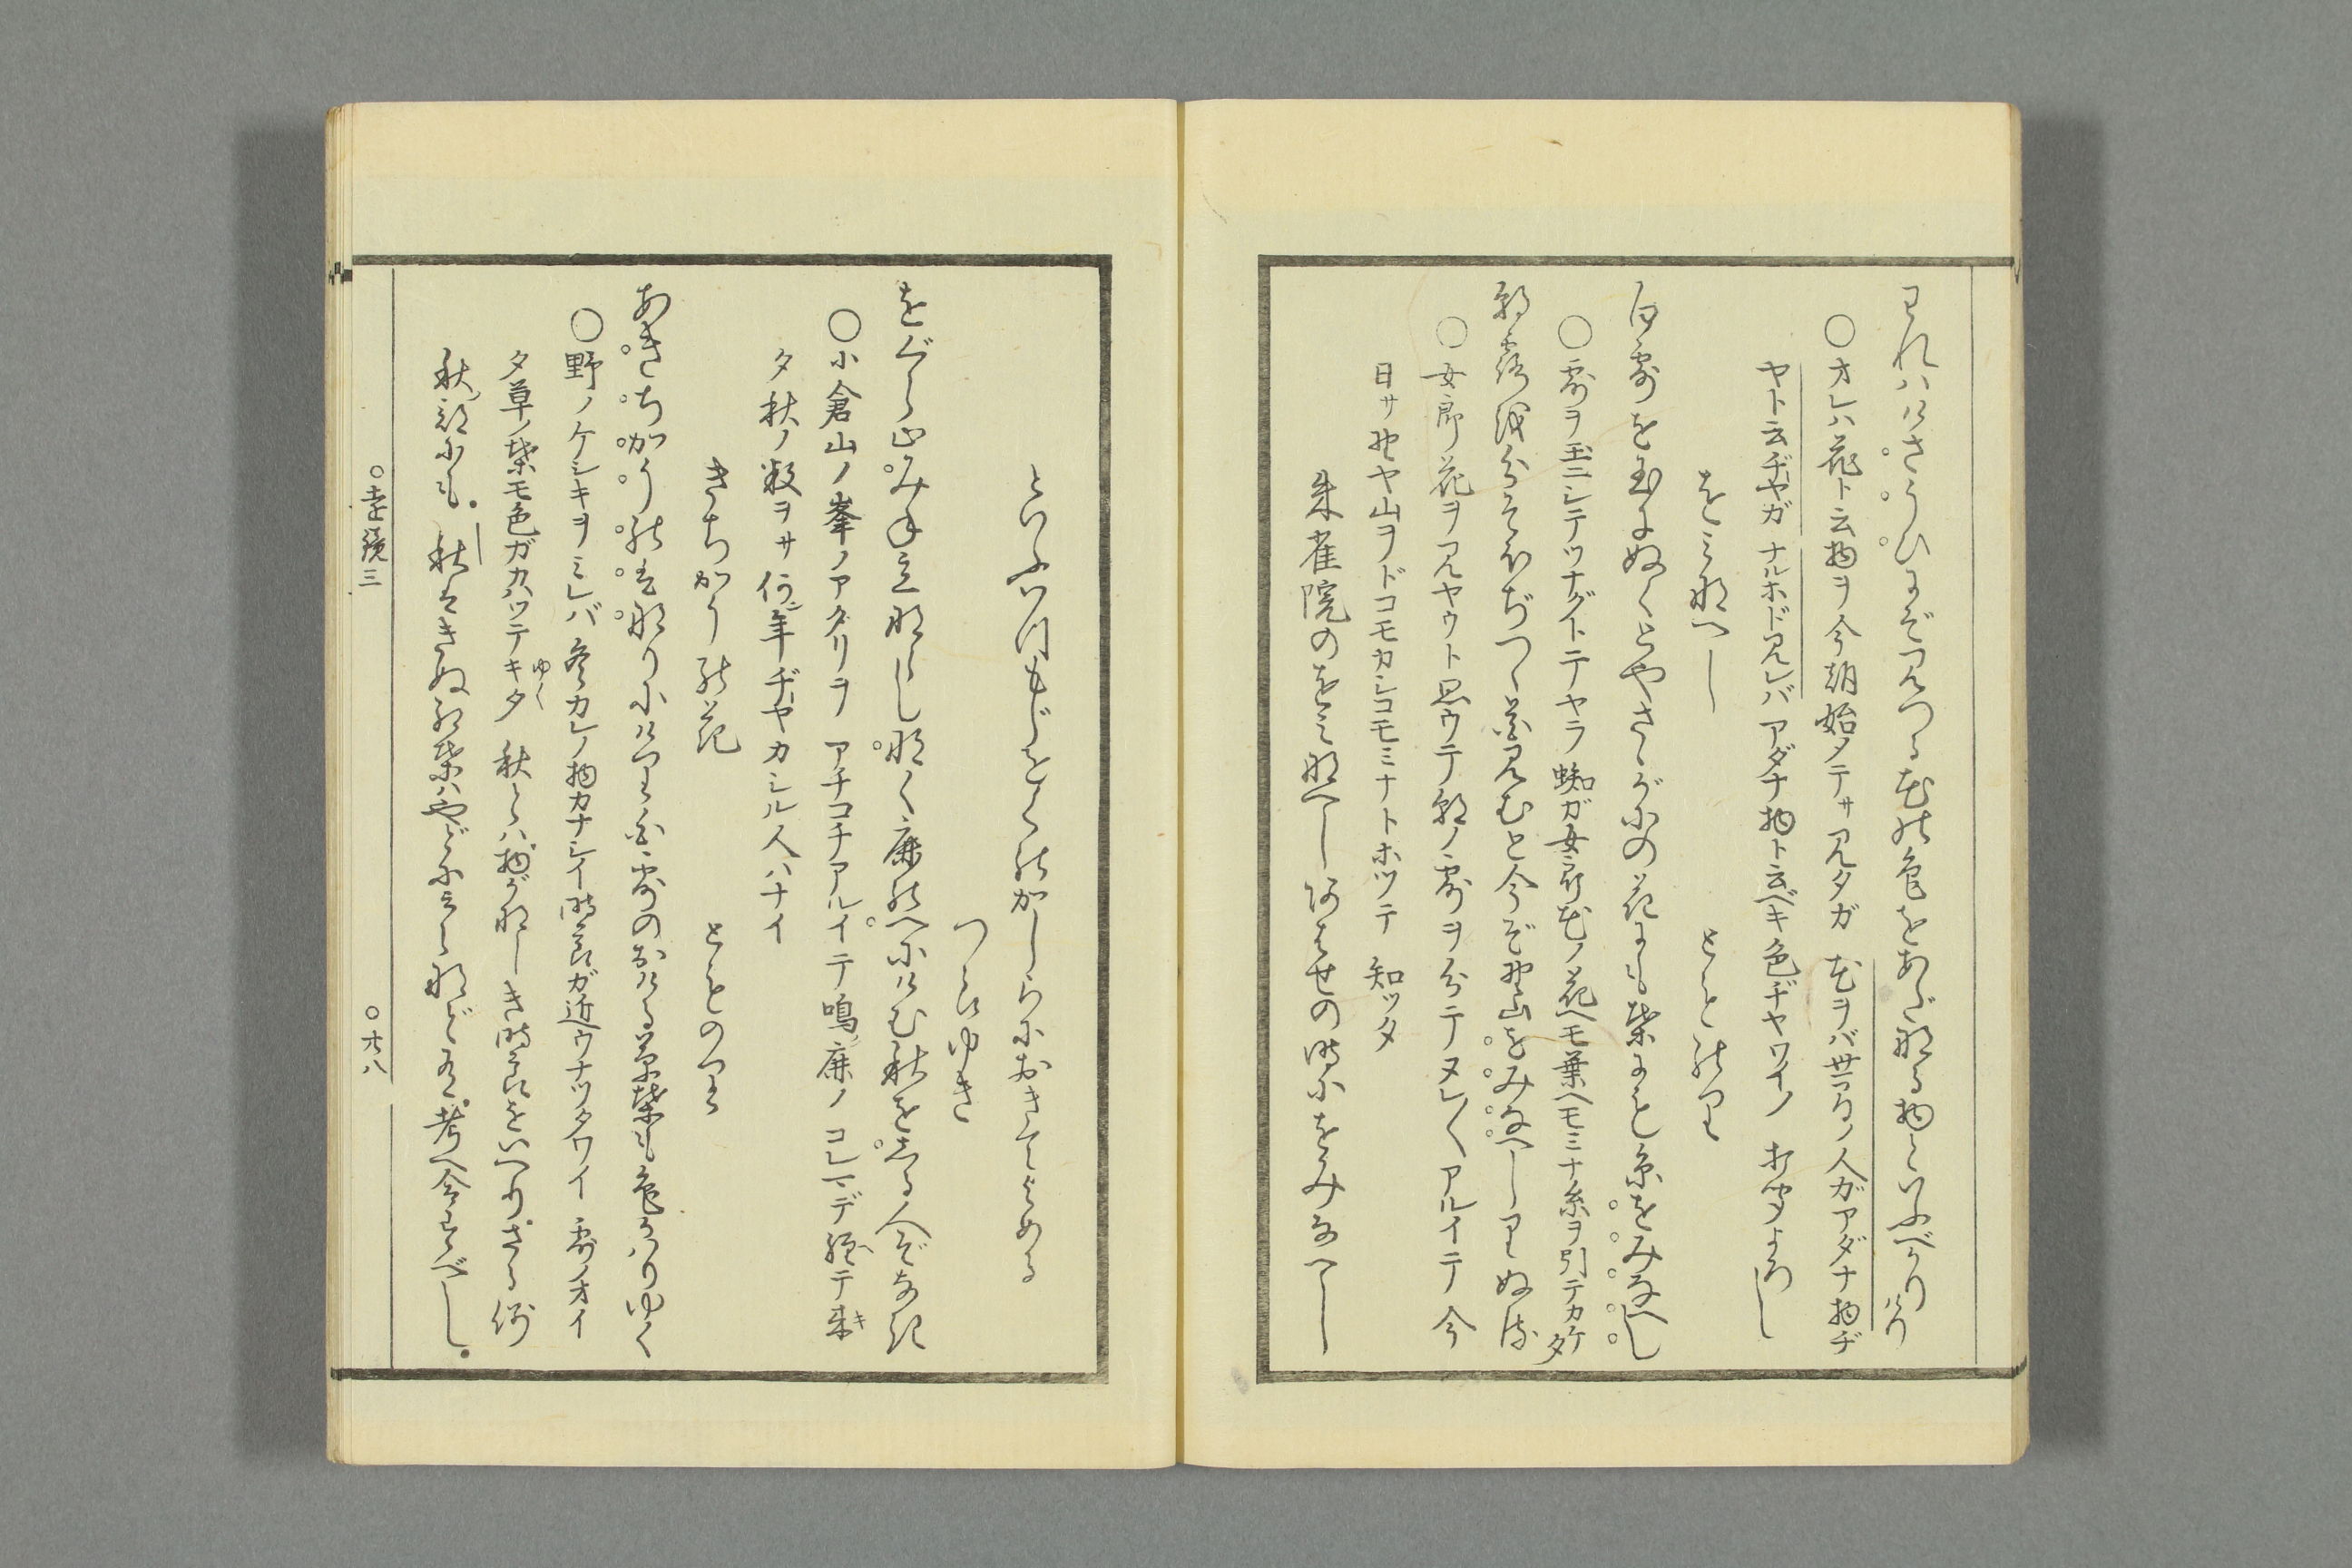 われハけさうひにぞ見つる花の色をあだなる物といふべかりけり
○オレハ花ト云物ヲ今朝始メテサ見タガ 花ヲバ世間ノ人ガアダナ物ヂ
ヤト云ヂヤガ ナルホド見レバ アダナ物ト云ベキ色ヂヤワイノ 打聞よろし
をミなへし とものり
白露を玉にぬくとやさゝがにの花にも葉にも糸をみなへし
○露ヲ玉ニシテツナグトテヤラ 蜘ガ女郎花ノ花ヘモ葉ヘモミナ糸ヲ引テカケタ
朝露を分そほぢつゝ花見むと今ぞ野山をみなへしりぬる
○女郎花ヲ見ヤウト思ウテ朝ノ露ヲ分テヌレ〱アルイテ 今
日サ野ヤ山ヲドコモカシコモミナトホツテ 知ツタ
朱雀院のをミなへしあはせの時にをみなへし
といふいつもじをくのかしらにおきてよめる
つらゆき
をぐら山みね立ならしなく鹿のへにけむ秋をしる人ぞなき
○小倉山ノ峯ノアタリヲ アチコチアルイテ鳴鹿ノ コレマデ経テ来キ
タ秋ノ数ヲサ 何年ヂヤカシル人ハナイ
きちかうの花 とものり
あきちかう野はなりにけり白露のおける草葉も色かハりゆく
○野ノケシキヲミレバ 冬カレノ物カナシイ時節ガ近ウナツタワイ 露ノオイ
タ草ノ葉モ色ガカハツテキタ ゆく 秋とハ物がなしき時節をいへり さる例
秋ノ部にも 秋はきぬ紅葉ハやどに云々など有 考へ合すべし
○遠鏡三 ○廿八